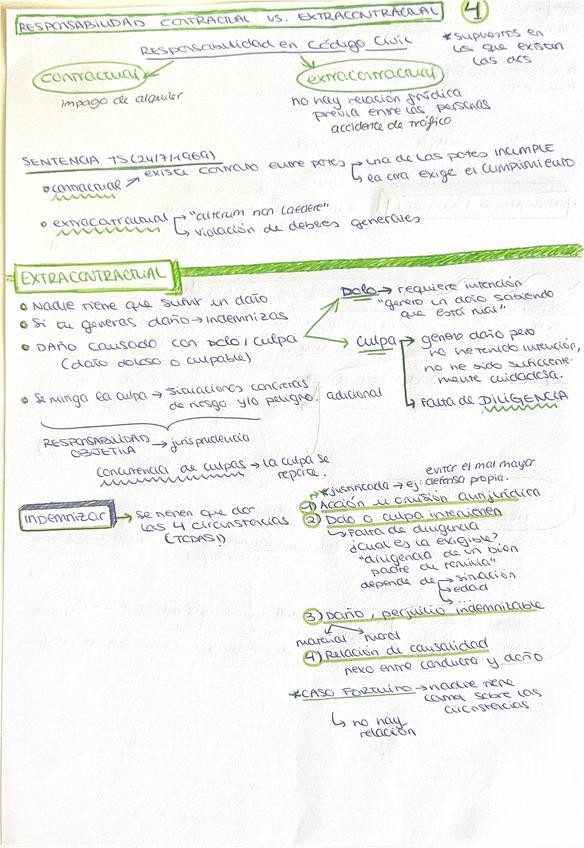 RESPONSABILIDAD CONTRACTUAL VS. EXTRACONTRACTUAL
4
Responsabilidad en Código Civil
*supuestos en
los que existan
las dos
contractual
impago de alquiler
extracontractual
no hay relación jurídica
previa entre las personas
accidente de tráfico
SENTENCIA TS (24/7/1969)
contractual → existe contrato entre partes → una de las partes INCUMPLE
→ la otra exige el CUMPLIMIENTO
extracontractual → "alterum non laedere"
→ violación de deberes generales
EXTRACONTRACTUAL
Nadie tiene que sufrir un daño
Si tu generas daño → indemnizas
DAÑO CAUSADO CON DOLO / CULPA
(daño doloso o culpable)
DOLO → requiere intención
"genero un daño sabiendo
que está mal"
CULPA → genero daño pero
no he tenido intención,
no he sido suficiente-
mente cuidadosa.
→ Falta de DILIGENCIA
Se mitiga la culpa → situaciones concretas
de riesgo y/o peligro. adicional
RESPONSABILIDAD → jurisprudencia
OBJETIVA
concurrencia de culpas → la culpa se
reparte.
indemnizar → se tienen que dar
las 4 circunstancias
(TODAS!)
evitar el mal mayor
*justificada → ej: defensa propia.
1) Acción u omisión antijurídica
2) Dolo o culpa intervienen
→ Falta de diligencia
¿Cuál es la exigible?
"diligencia de un buen
padre de familia"
depende de → situación
→ edad
→ ...
3) Daño, perjuicio indemnizable
material moral
4) Relación de causalidad
nexo entre conducta y daño
*CASO FORTUITO → nadie tiene
control sobre las
circunstancias
→ no hay
relación